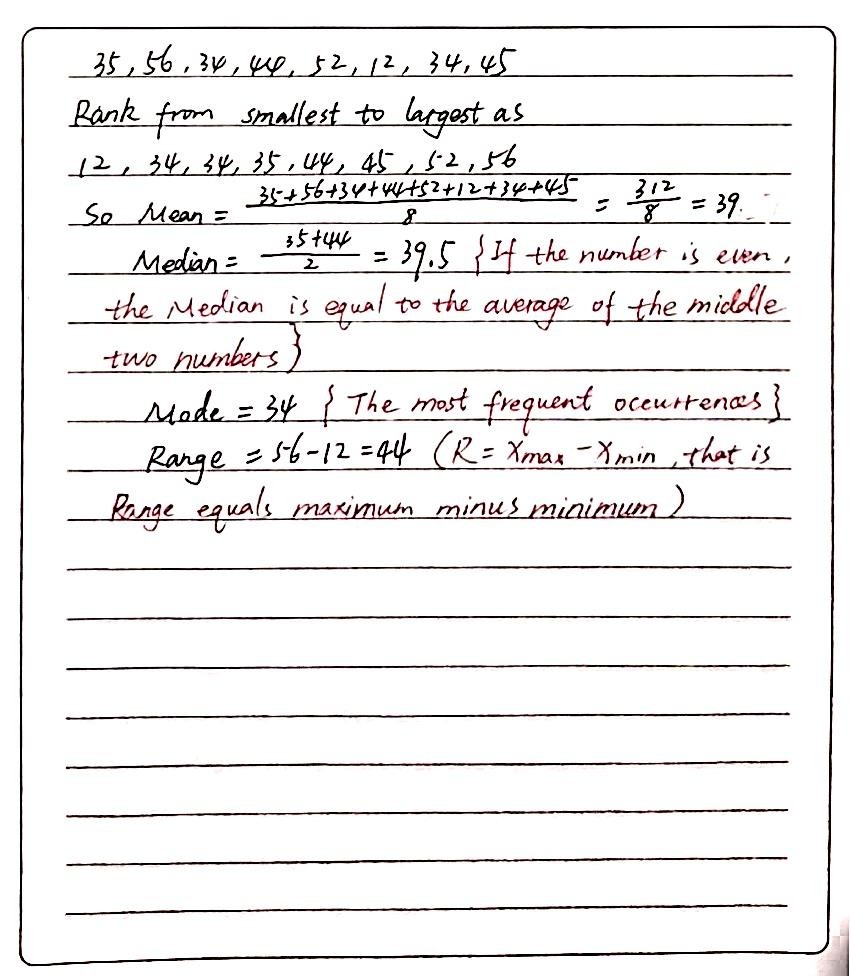 35, 56, 34, 44, 52, 12, 34, 45
Rank from smallest to largest as
12, 34, 34, 35, 44, 45, 52, 56
So Mean = (35+56+34+44+52+12+34+45)/8 = 312/8 = 39.
Median = (35+44)/2 = 39.5 {If the number is even,
the Median is equal to the average of the middle
two numbers}
Mode = 34 {The most frequent occurrences}
Range = 56-12 = 44 (R = Xmax - Xmin, that is
Range equals maximum minus minimum)